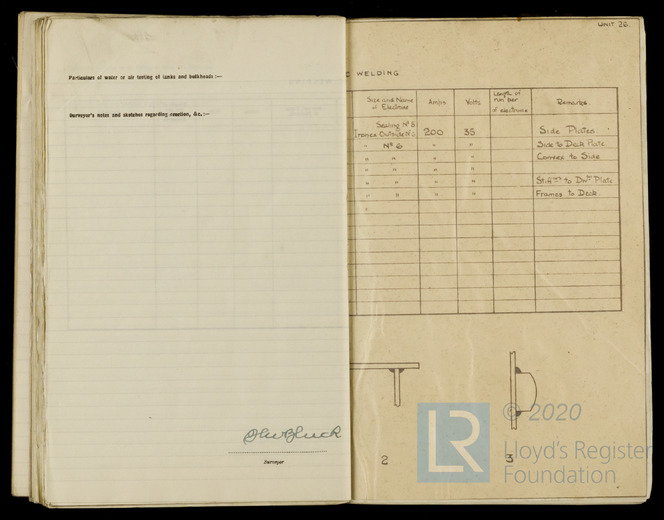 Particulars of water or air testing of tanks and bulkheads :—
Surveyor's notes and sketches regarding erection, &c. :—
Surveyor
UNIT 26.
C WELDING
Size and Name of Electrode
Amps
Volts
Length of run per of electrode
Remarks.
Sealing Nº 8
Ironex Outside Nº 6 200 35 Side Plates
" Nº 6 " " Side to Deck Plate
" " " " Convex to Side
" " " "
" " " " Stiffrs to Dk Plate
" " " " Frames to Deck.
"
2
3
LR
© 2020
Lloyd's Register
Foundation